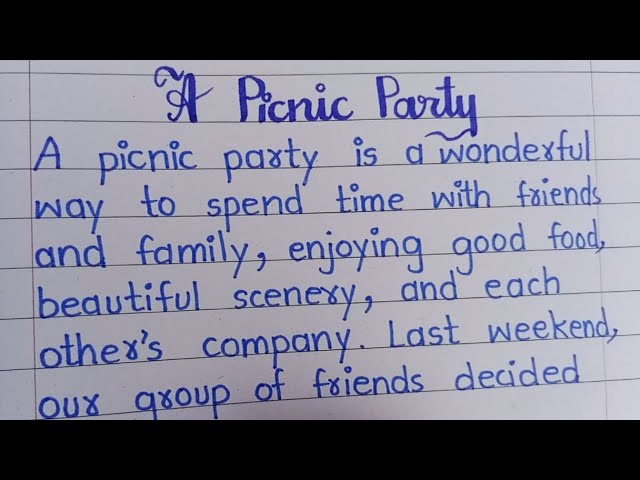 A Picnic Party
A picnic party is a wonderful
way to spend time with friends
and family, enjoying good food,
beautiful scenery, and each
other's company. Last weekend,
our group of friends decided